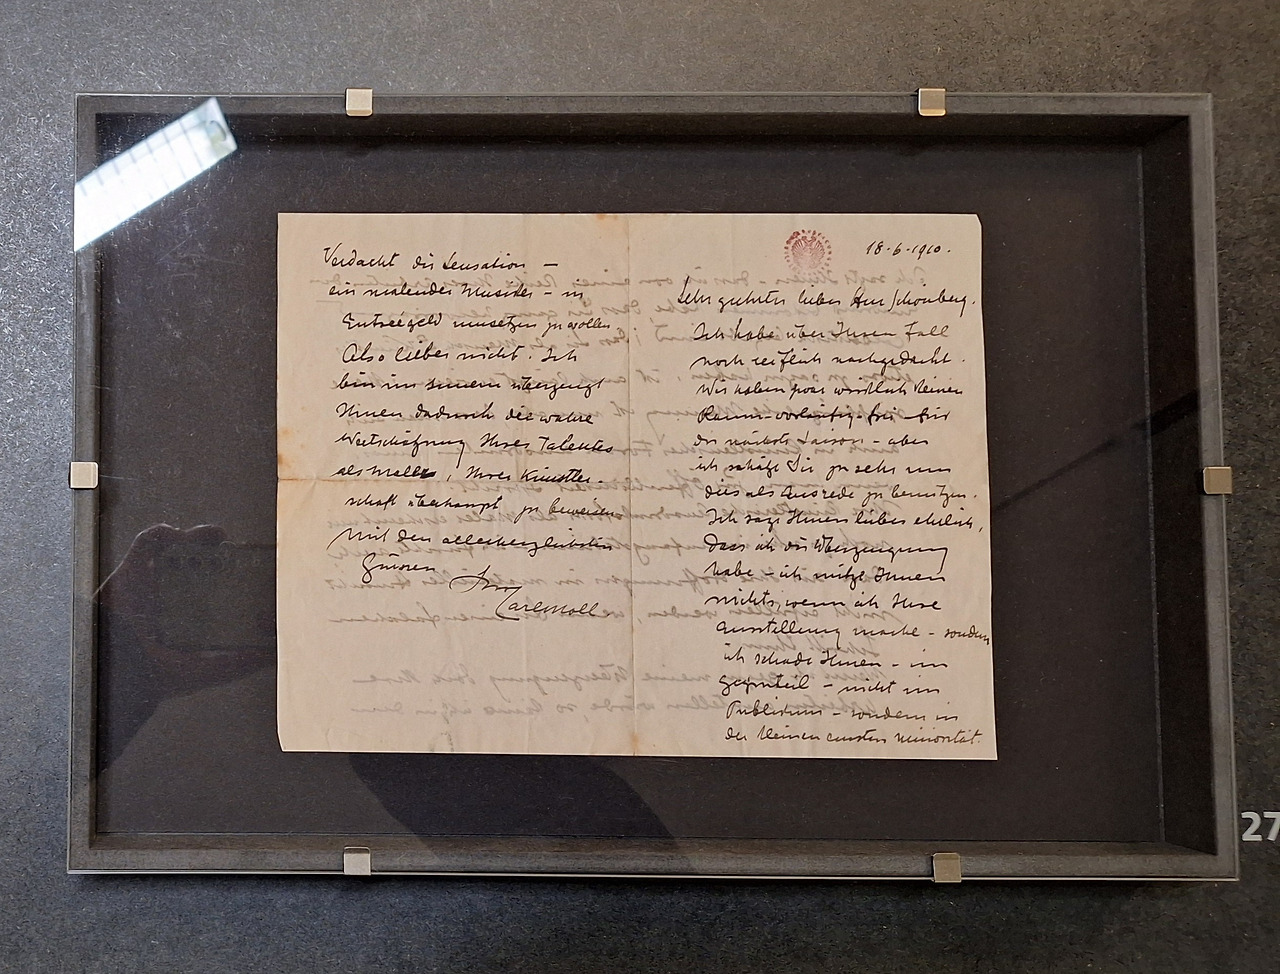 18·6·1910.
Sehr geehrter lieber Herr Schönberg.
Ich habe über Ihren Fall
noch reiflich nachgedacht.
Wir haben zwar wirklich keinen
Raum vorläufig frei für
die nächste Saison – aber
ich schätze Sie zu sehr um
dies als Ausrede zu benützen.
Ich sage Ihnen lieber ehrlich,
dass ich die Überzeugung
habe – ich nütze Ihnen
nichts, wenn ich Ihre
Ausstellung mache – sondern
ich schade Ihnen – im
Gegenteil – nicht im
Publikum – sondern in
der kleinen ernsten Minorität.
Verdacht die Sensation –
ein malender Musiker – in
Entréegeld umsetzen zu wollen
Also lieber nicht. Ich
bin im Innern überzeugt
Ihnen dadurch die wahre
Wertschätzung Ihres Talentes
als Maler, Ihrer Künstler-
schaft überhaupt zu beweisen
Mit den allerherzlichsten
Grüssen
Ihr
Carl Moll
27